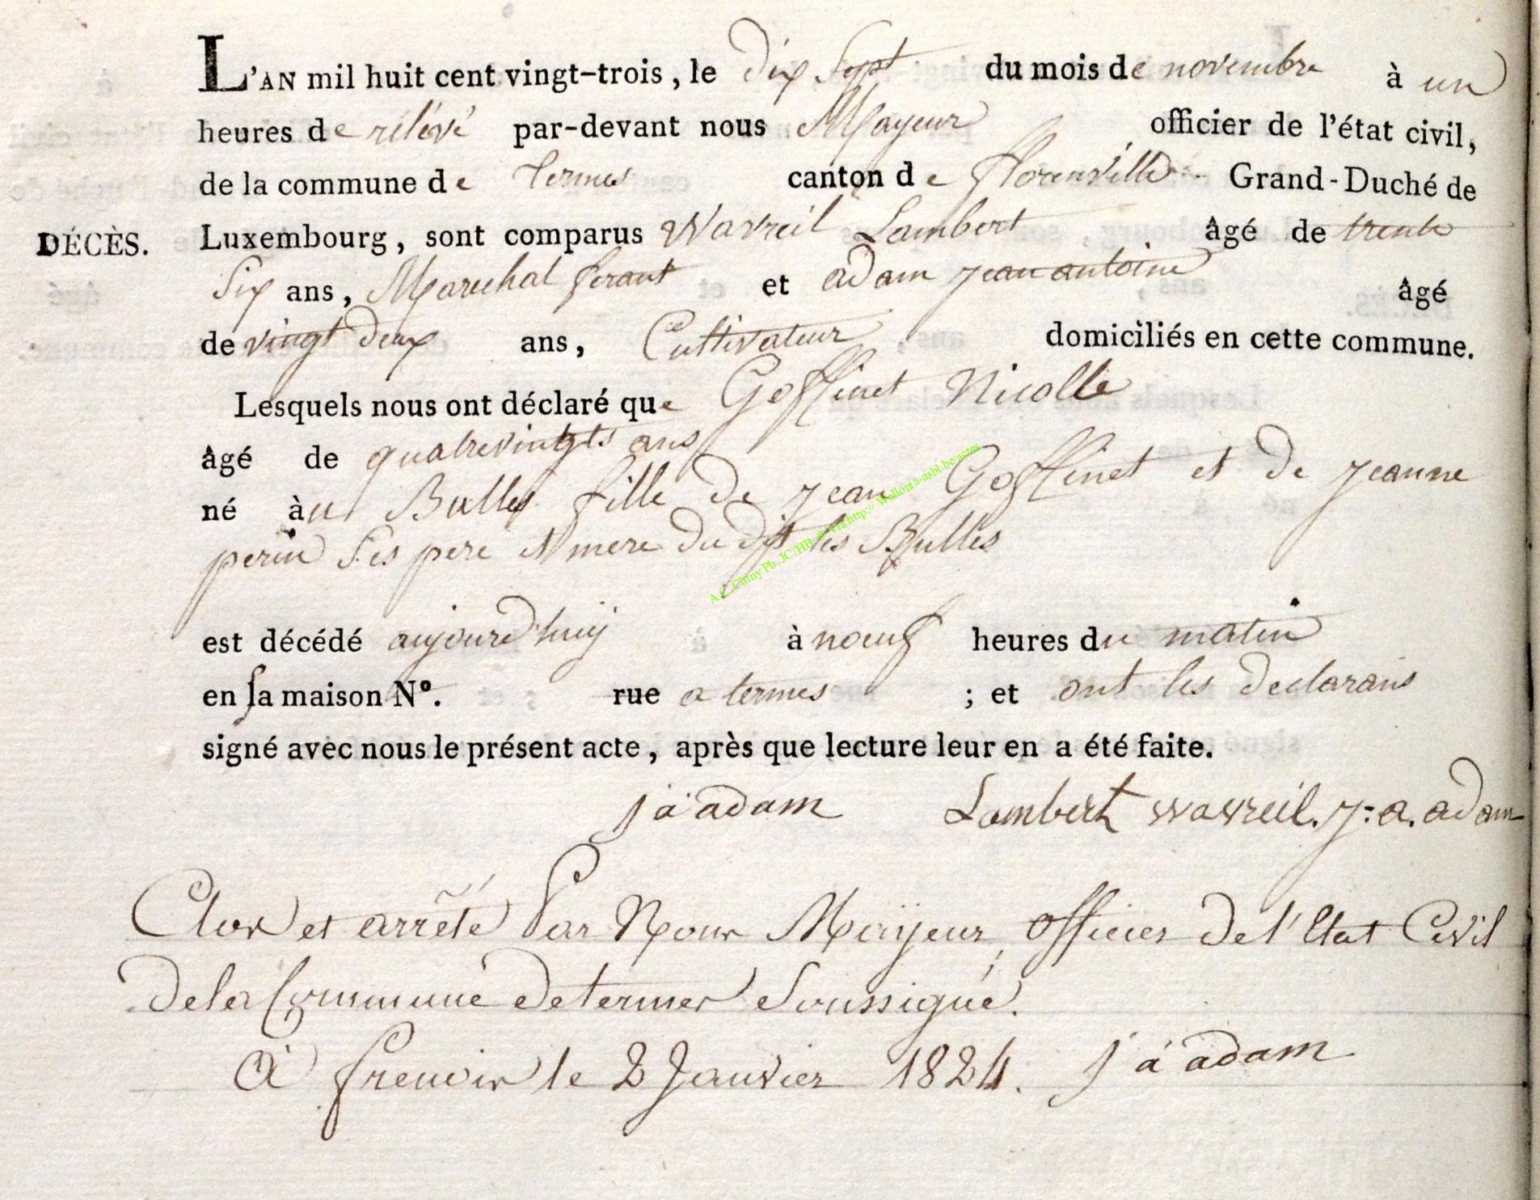 L'AN mil huit cent vingt-trois, le dix Sept du mois de novembre à un
heures de rélévé par-devant nous Mayeur officier de l'état civil,
de la commune de termes canton de florenville Grand-Duché de
DÉCÈS. Luxembourg, sont comparus Wavreil Lambert âgé de trente
Six ans, Marechal ferant et adam jean antoine âgé
de vingt deux ans, Cultivateur domiciliés en cette commune.
Lesquels nous ont déclaré que Goffinet Nicolle
âgé de quatrevingts ans
né àu Bulles fille de jean Goffinet et de jeanne
perin Ses pere et mere du dit les Bulles
est décédé aujourd'huij à noeuf heures du matin
en sa maison N°. rue a termes ; et ont les declarans
signé avec nous le présent acte, après que lecture leur en a été faite.
j a adam Lambert wavreil. j:a. adam
Clos et arrêté Par Nous Maijeur, officier de l'Etat Civil
dela Commune de termes Soussigné.
A frenoir le 2 Janvier 1824. j a adam